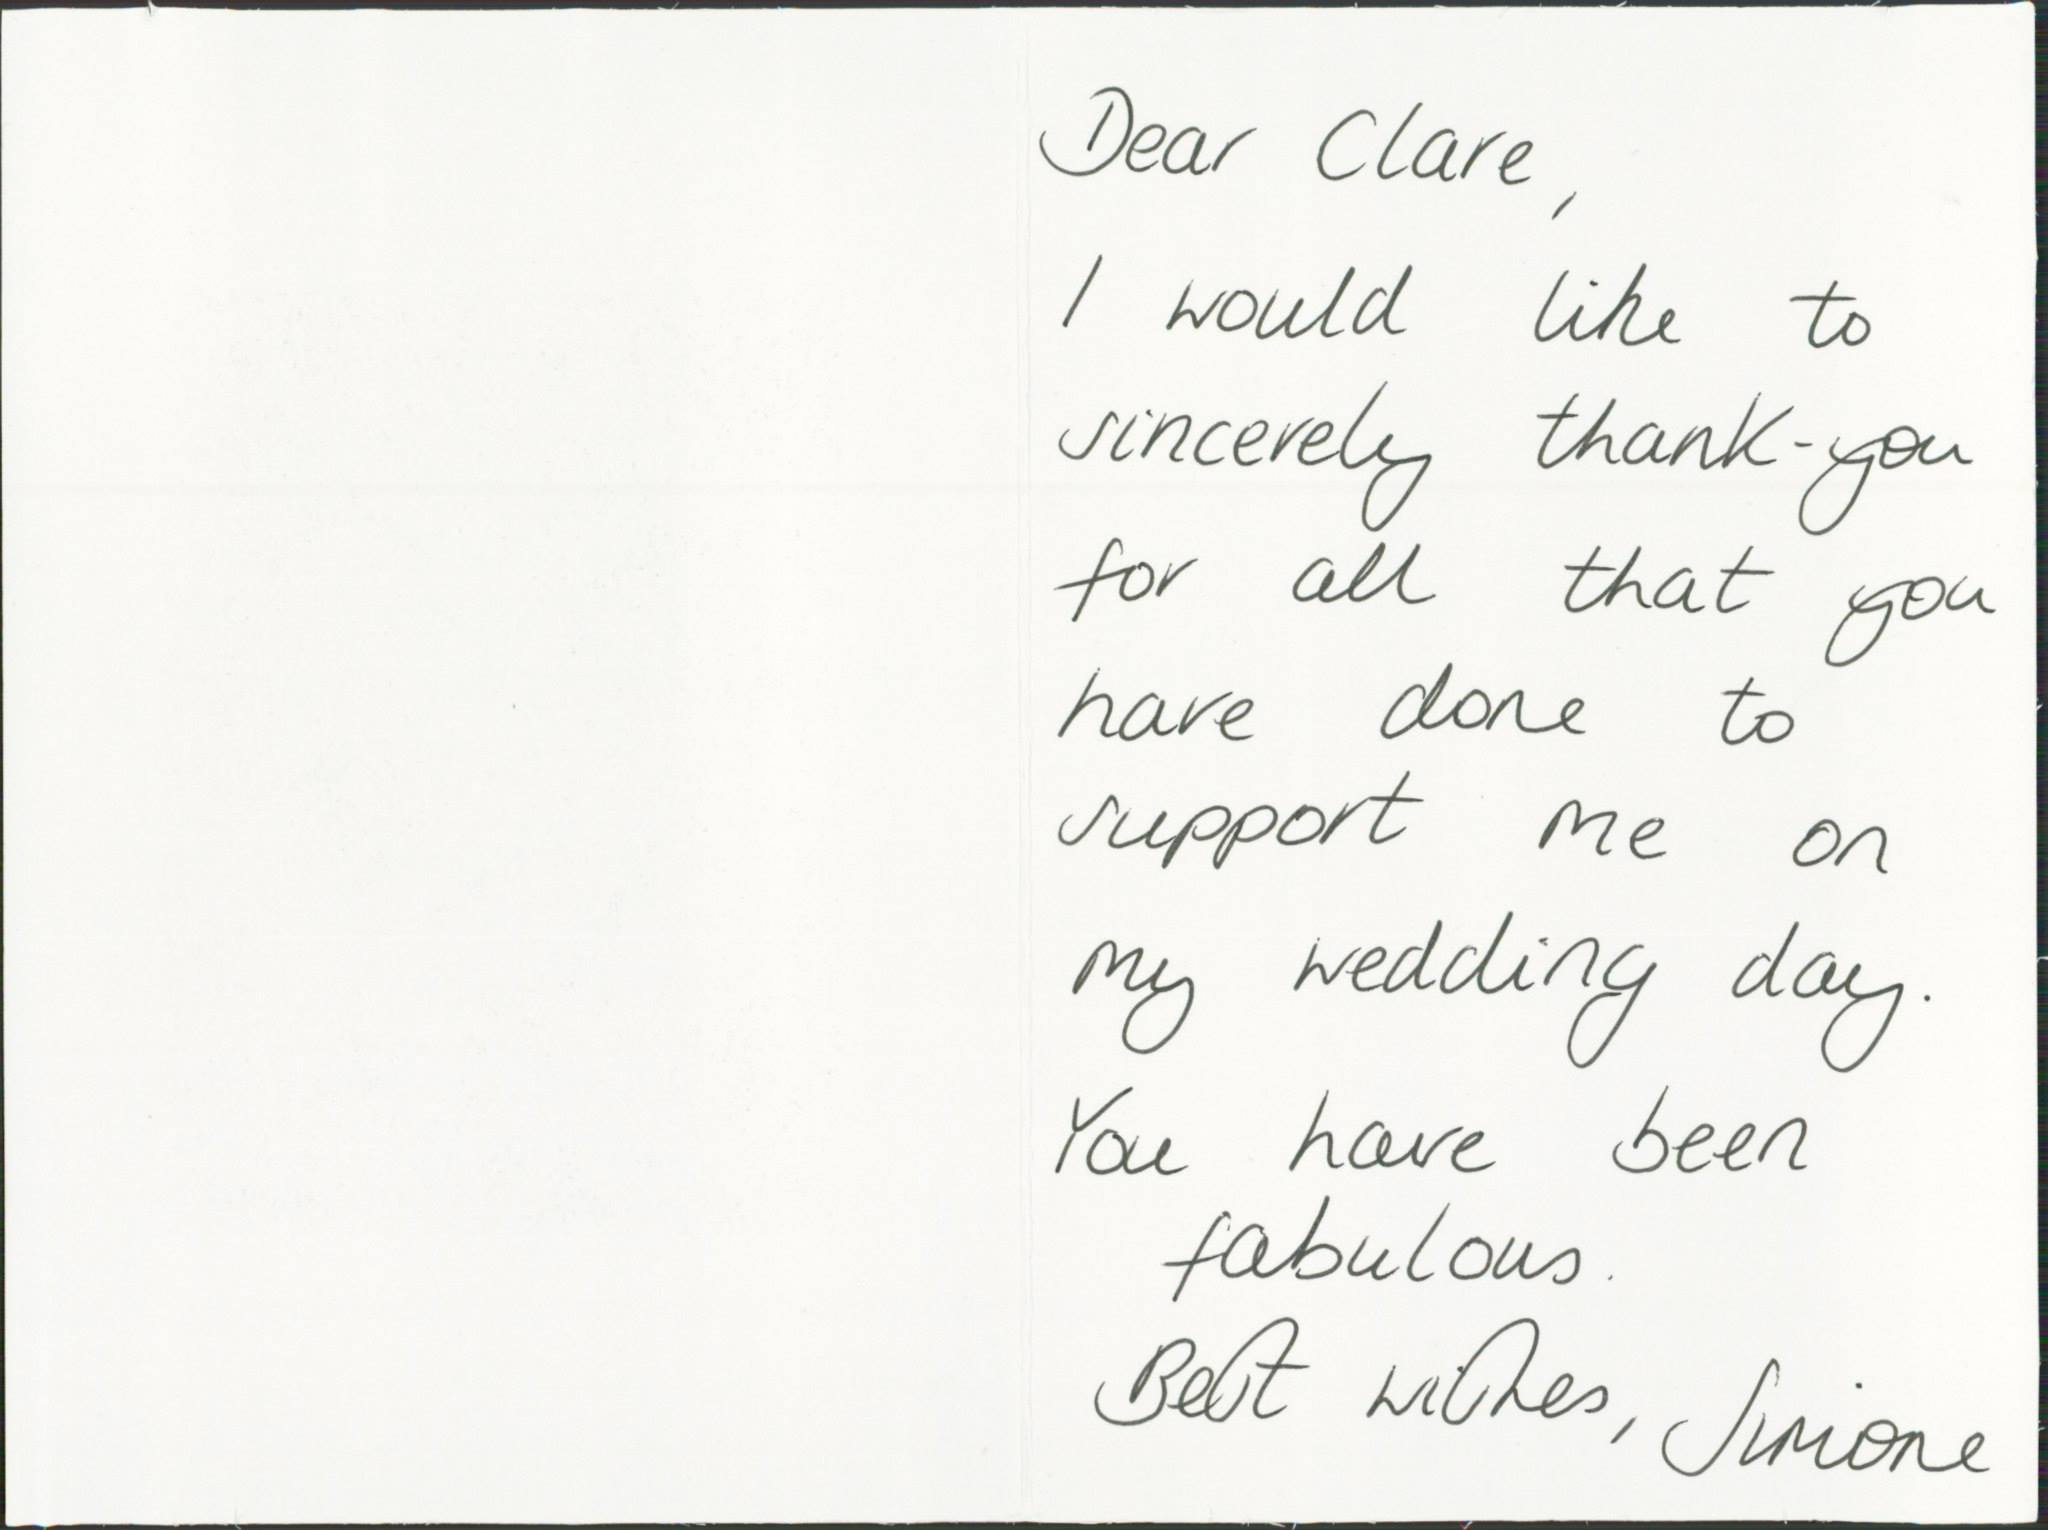 Dear Clare,
I would like to
sincerely thank-you
for all that you
have done to
support me on
my wedding day.
You have been
fabulous.
Best wishes, Simone